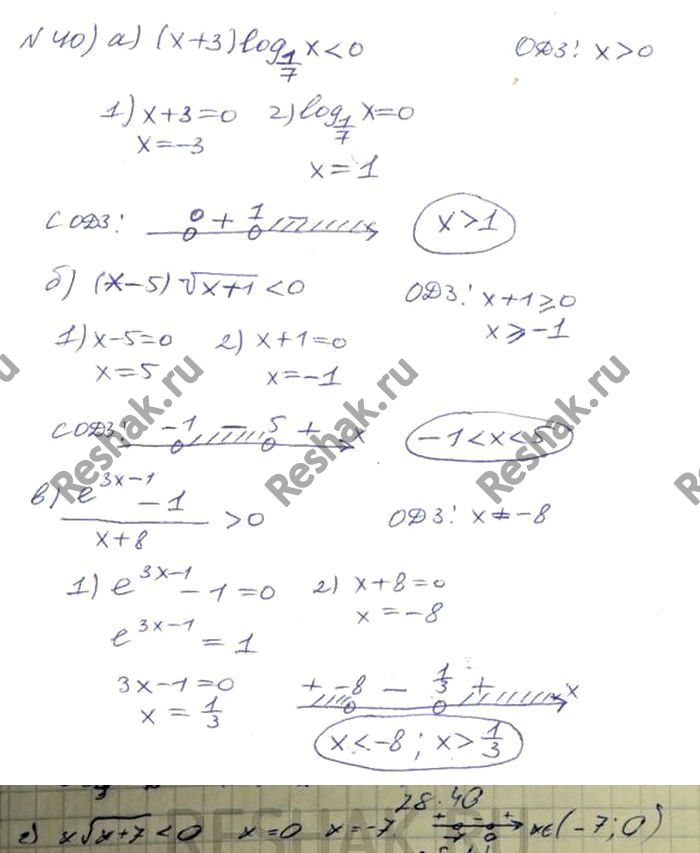 N40) а) (x+3)log_{1/7} x<0 ОДЗ: x>0
1) x+3=0 2) log_{1/7} x=0
x=-3
x=1
С ОДЗ: 0 + 1 - x>1
б) (x-5)√x+1 <0 ОДЗ: x+1≥0
1) x-5=0 2) x+1=0 x≥-1
x=5 x=-1
С ОДЗ: -1 - 5 + x -1<x<5
в) (e^{3x-1} -1)/(x+8) >0 ОДЗ: x≠-8
1) e^{3x-1} -1=0 2) x+8=0
x=-8
e^{3x-1} =1
3x-1=0 + -8 - 1/3 + x
x=1/3
x<-8; x>1/3
28.40
г) x√x+7 <0 x=0 x=-7 + - + x∈(-7;0)
Reshak.ru
Reshak.ru
Reshak.ru
RESHAK.RU